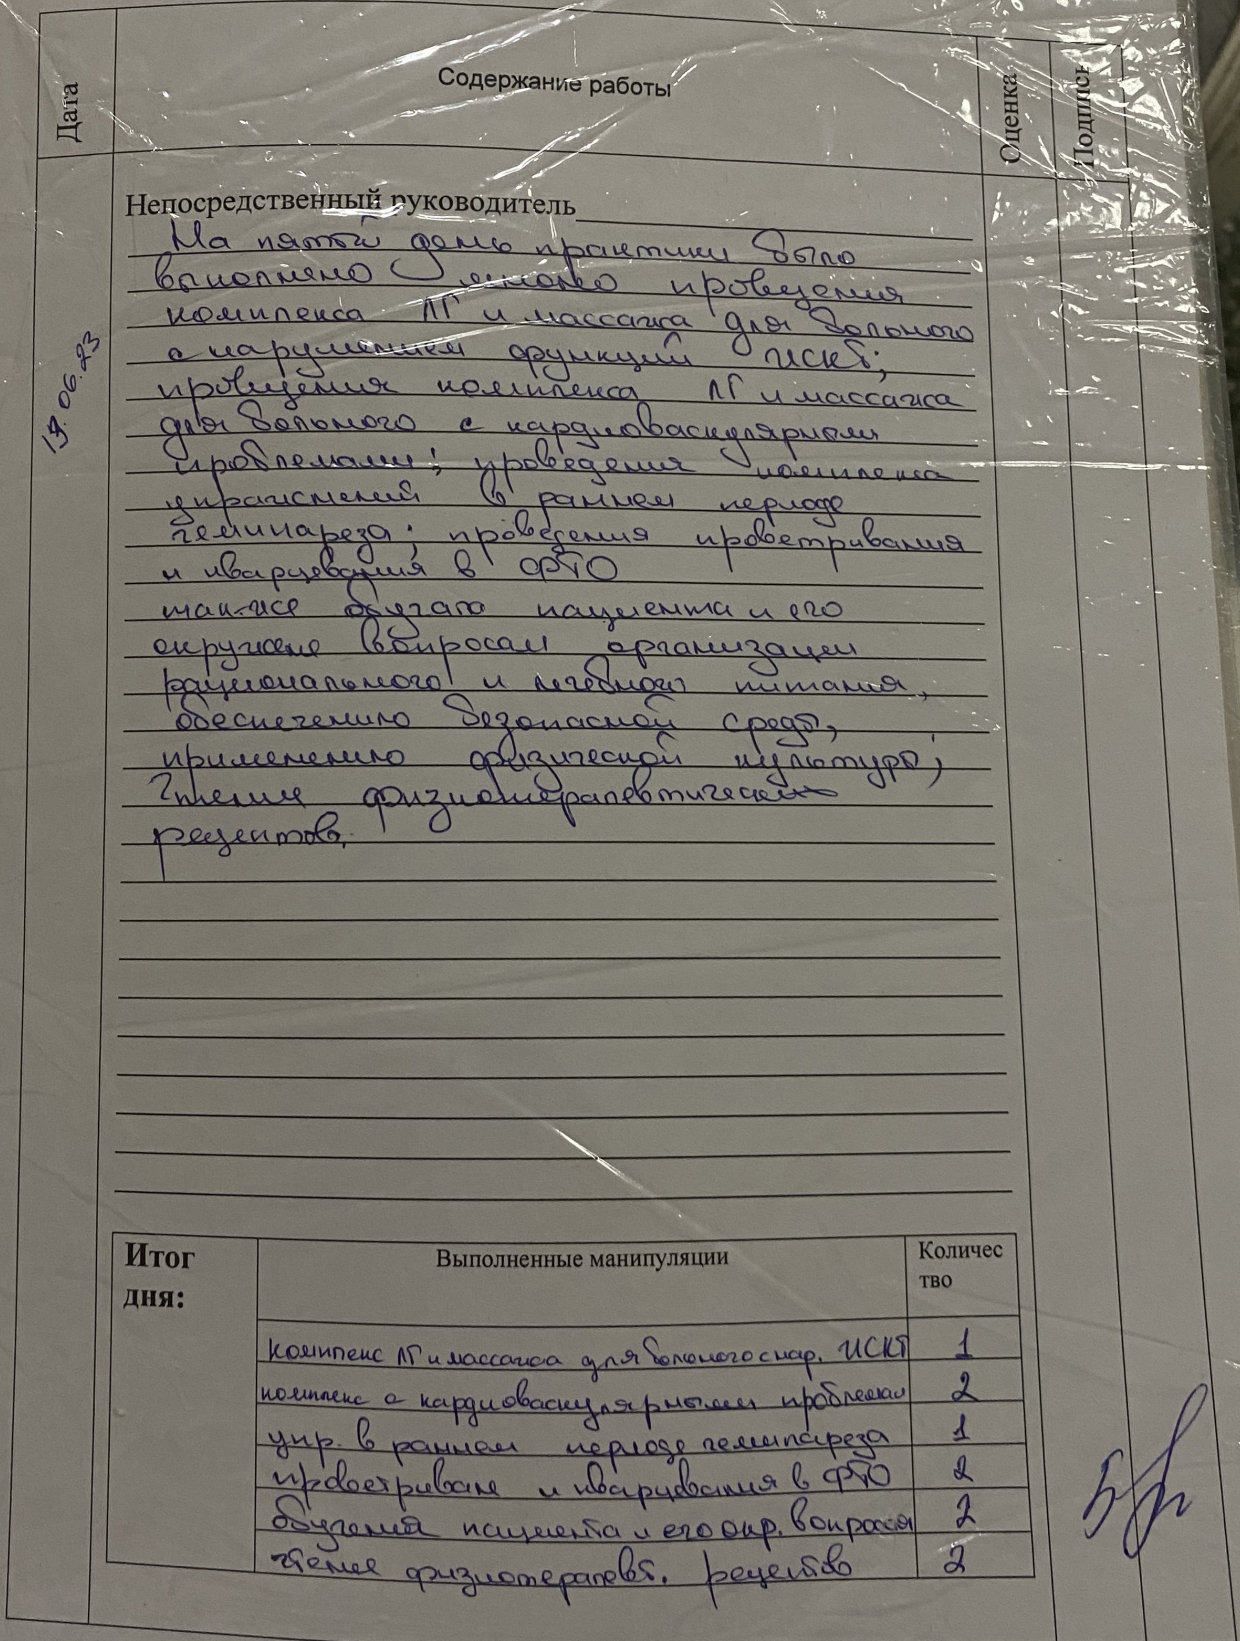 Дата
Содержание работы
Оценка
Подпись
Непосредственный руководитель
На пятый день практики было
выполнено проведения
комплекса ЛГ и массажа для больного
с нарушением функций
проведения комплекса ЛГ и массажа
для больного с кардиоваскулярными
проблемами; проведения комплекса
упражнений в раннем периоде
гемипареза; проведения проветривания
и кварцевания в ФТО
так-же обучала пациента и его
окружение вопросам организации
рационального и лечебного питания,
обеспечению безопасной среды,
применению физической культуры;
Чтение физиотерапевтически
рецептов.
.06.23
Итог
дня:
Выполненные манипуляции
Количес
тво
комплекс ЛГ и массажа для больного с нар.
1
комплекс с кардиоваскулярными проблемами
2
упр. в раннем периоде гемипареза
1
проветриване и кварцевания в ФТО
2
обучения пациента и его окр. вопросам
2
чтение физиотерапевт. рецептов
2
5